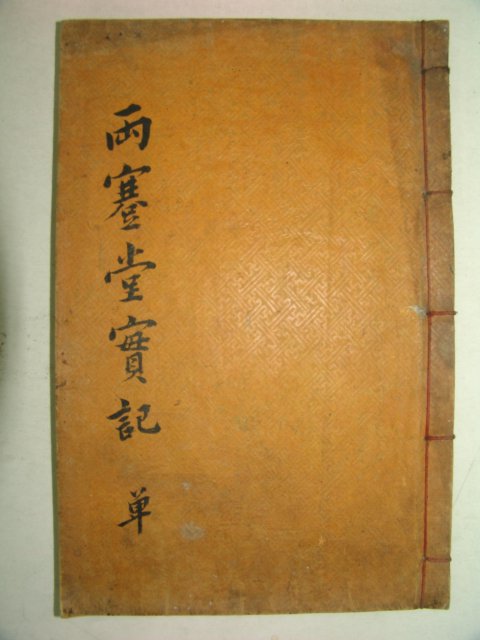 兩蹇堂實記 单